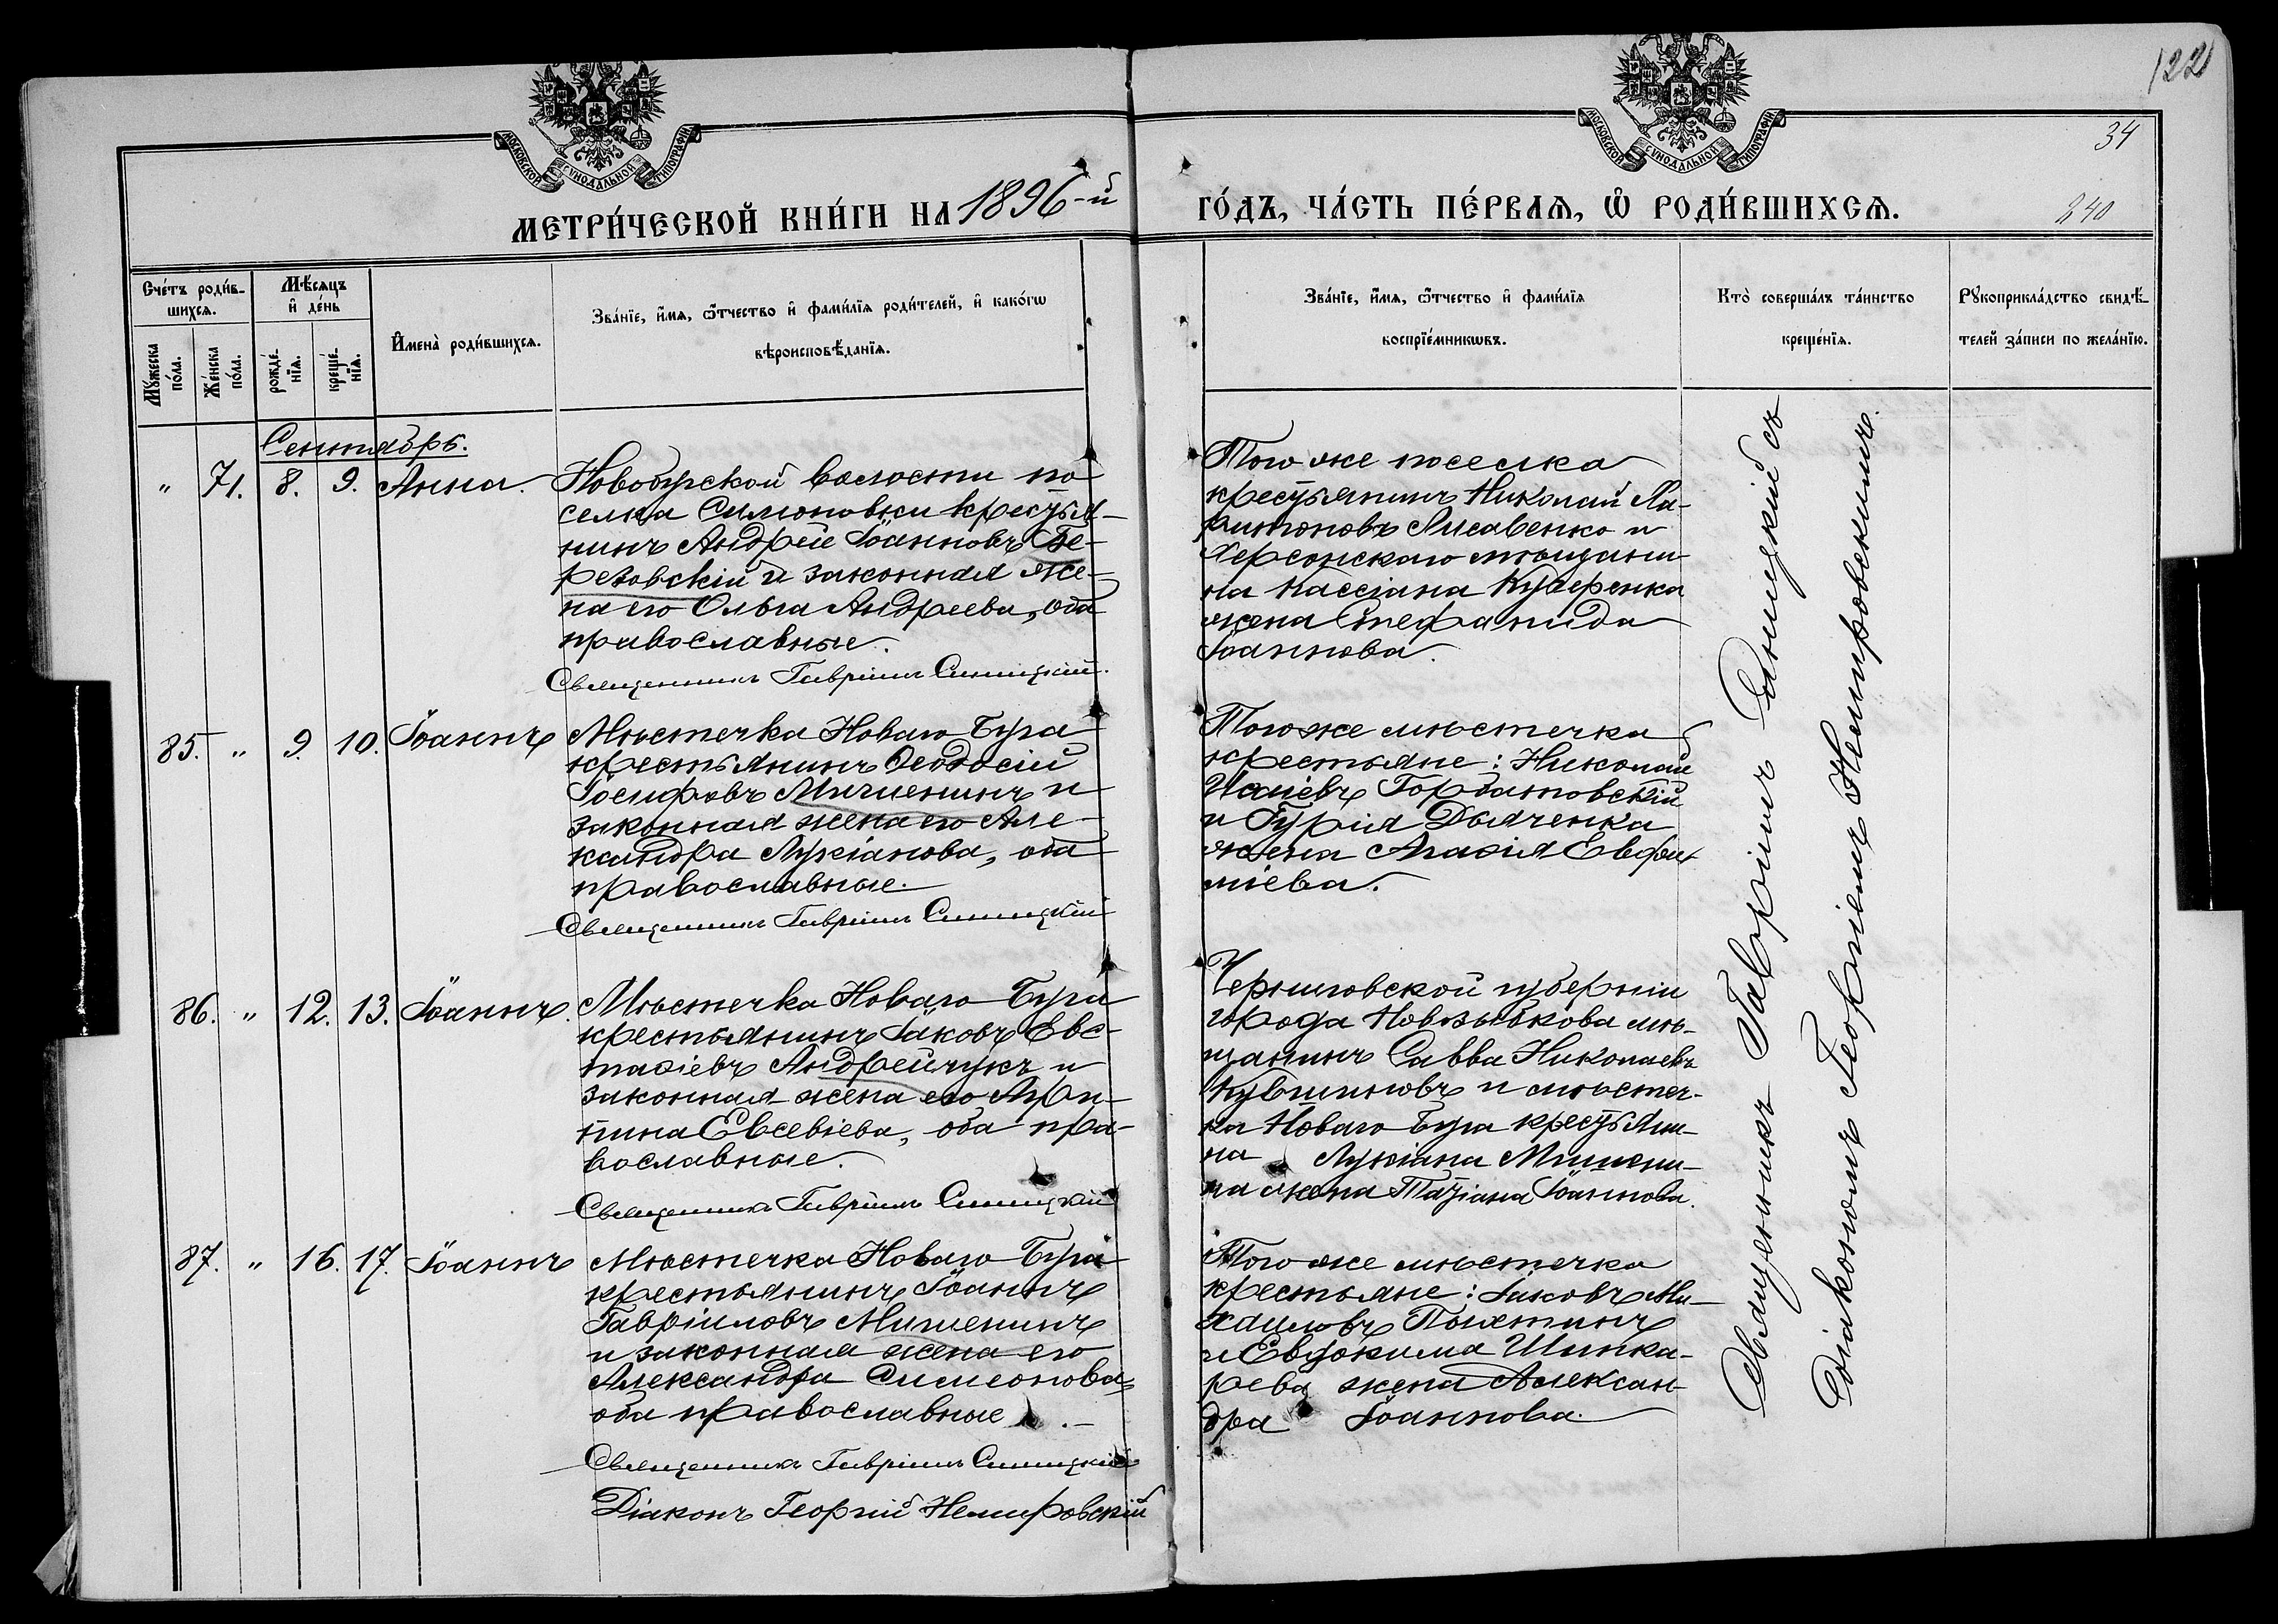 122
34
240
МОСКОВСКОЙ СѴНОДАЛЬНОЙ ТИПОГРАФІИ
МОСКОВСКОЙ СѴНОДАЛЬНОЙ ТИПОГРАФІИ
МЕТРИ́ЧЕСКОЙ КНИ́ГИ НА 1896-й
ГО́ДЪ, ЧА́СТЬ ПЕ́РВАЯ, Ѡ҆ РОДИ́ВШИХСЯ.
Сче́тъ роди́в-
шихся.
Мꙋ́жеска по́ла.
Же́нска по́ла.
Мѣ́сяцъ
и҆ де́нь
рожде́-
нїя.
креще́-
нїя.
И҆мена̀ роди́вшихся.
Зва́нїе, и҆́мя, ѻ҆́тчество и҆ фами́лїя роди́телей, и҆ како́гѡ
вѣроисповѣ́данїя.
Зва́нїе, и҆́мя, ѻ҆́тчество и҆ фами́лїя
воспрїе́мникѡвъ.
Кто̀ соверша́лъ та́инство
креще́нїя.
Рꙋкоприкла́дство свидѣ́-
телей за́писи по жела́нїю.
Сентябрь.
" 71. 8. 9. Анна.
Новобугской волости по
селка Симоновки крестья-
нинъ Андрей Іоанновъ Бе-
резовскій и законная же-
на его Ольга Андреева, оба
православные.
Священникъ Гавріилъ Синицкій.
Того же поселка
крестьянинъ Николай Ха-
ритоновъ Лисавенко и
Херсонскаго мѣщани-
на Кассіана Кучеренка
жена Стефанида
Іоаннова.
85. " 9. 10. Іоаннъ
Мѣстечка Новаго Буга
крестьянинъ Ѳеодосій
Іосифовъ Мишенинъ и
законная жена его Але-
ксандра Лукіанова, оба
православные.
Священникъ Гавріилъ Синицкій
Того же мѣстечка
крестьяне: Николай
Исаіевъ Горбановскій
и Гурія Дьяченка
жена Агафія Евфи-
міева.
86. " 12. 13. Іоаннъ.
Мѣстечка Новаго Буга
крестьянинъ Іаковъ Евс-
тафіевъ Андрейчукъ и
законная жена его Агри-
пина Евсевіева, оба пра-
вославные.
Священникъ Гавріилъ Синицкій
Черниговской губерніи
города Новозыбкова мѣ-
щанинъ Савва Николаевъ
Кувшиновъ и мѣстеч-
ка Новаго Буга крестьяни-
на Лукіана Мишени-
на жена Татіана Іоаннова.
87. " 16. 17. Іоаннъ
Мѣстечка Новаго Буга
крестьянинъ Іоаннъ
Гавріиловъ Мишенинъ
и законная жена его
Александра Симеонова,
оба православные.
Священникъ Гавріилъ Синицкій
Діаконъ Георгій Немировскій
Того же мѣстечка
крестьяне: Іаковъ Ми-
хаиловъ
и Евдокима Шинка-
рева жена Алексан-
дра Іоаннова.
Священникъ Гавріилъ Синицкій съ
Діакономъ Георгіемъ Немировскимъ.